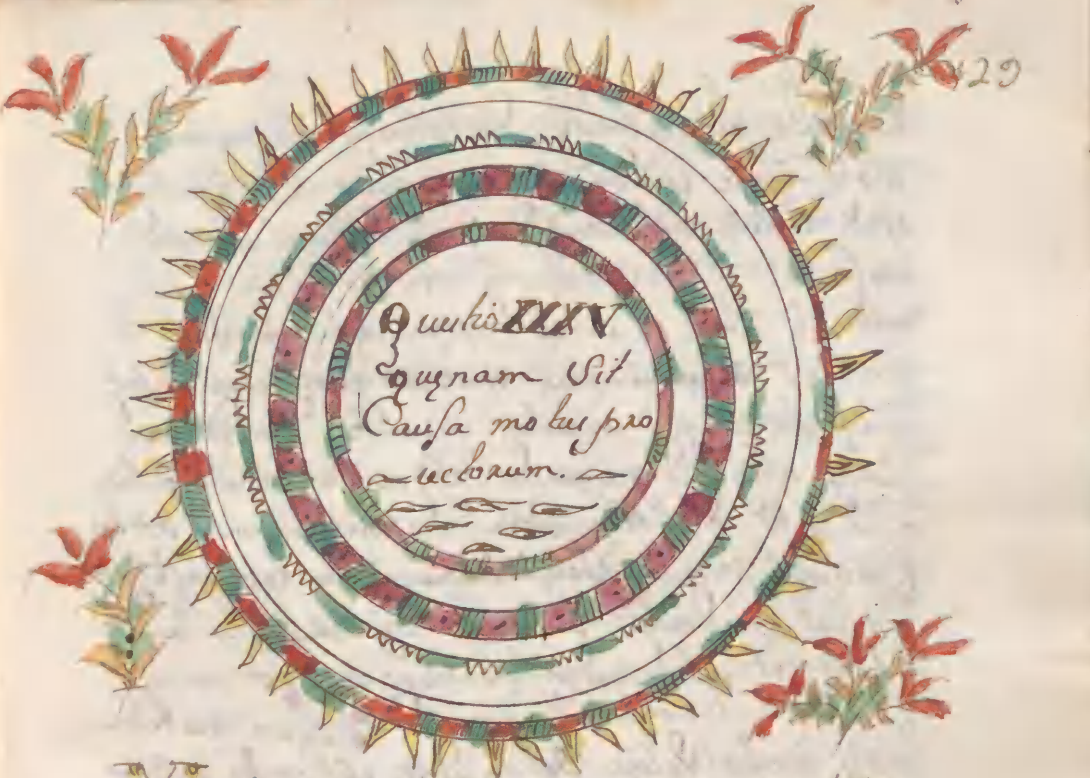 129
Questio XXXV
quęnam sit
Causa motus pro
iectorum.